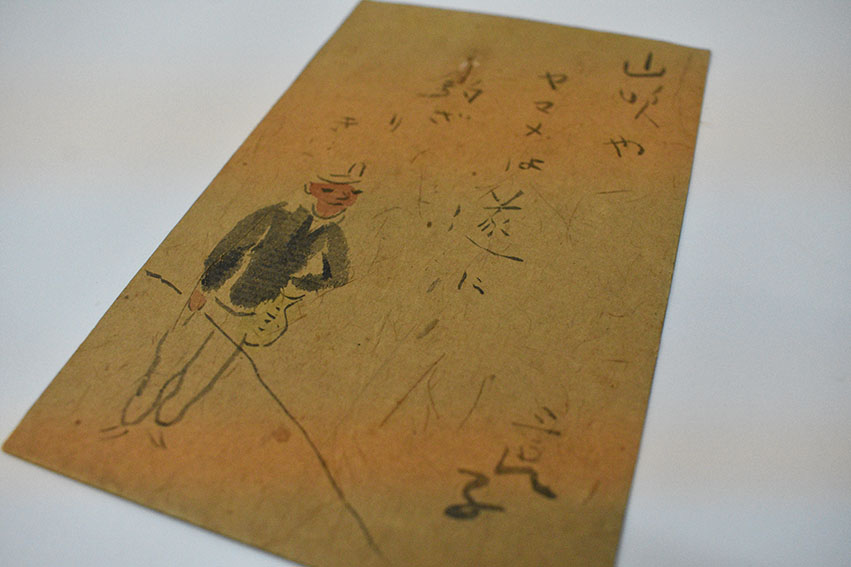 山吹や
ヤマメは遂に
ざりき